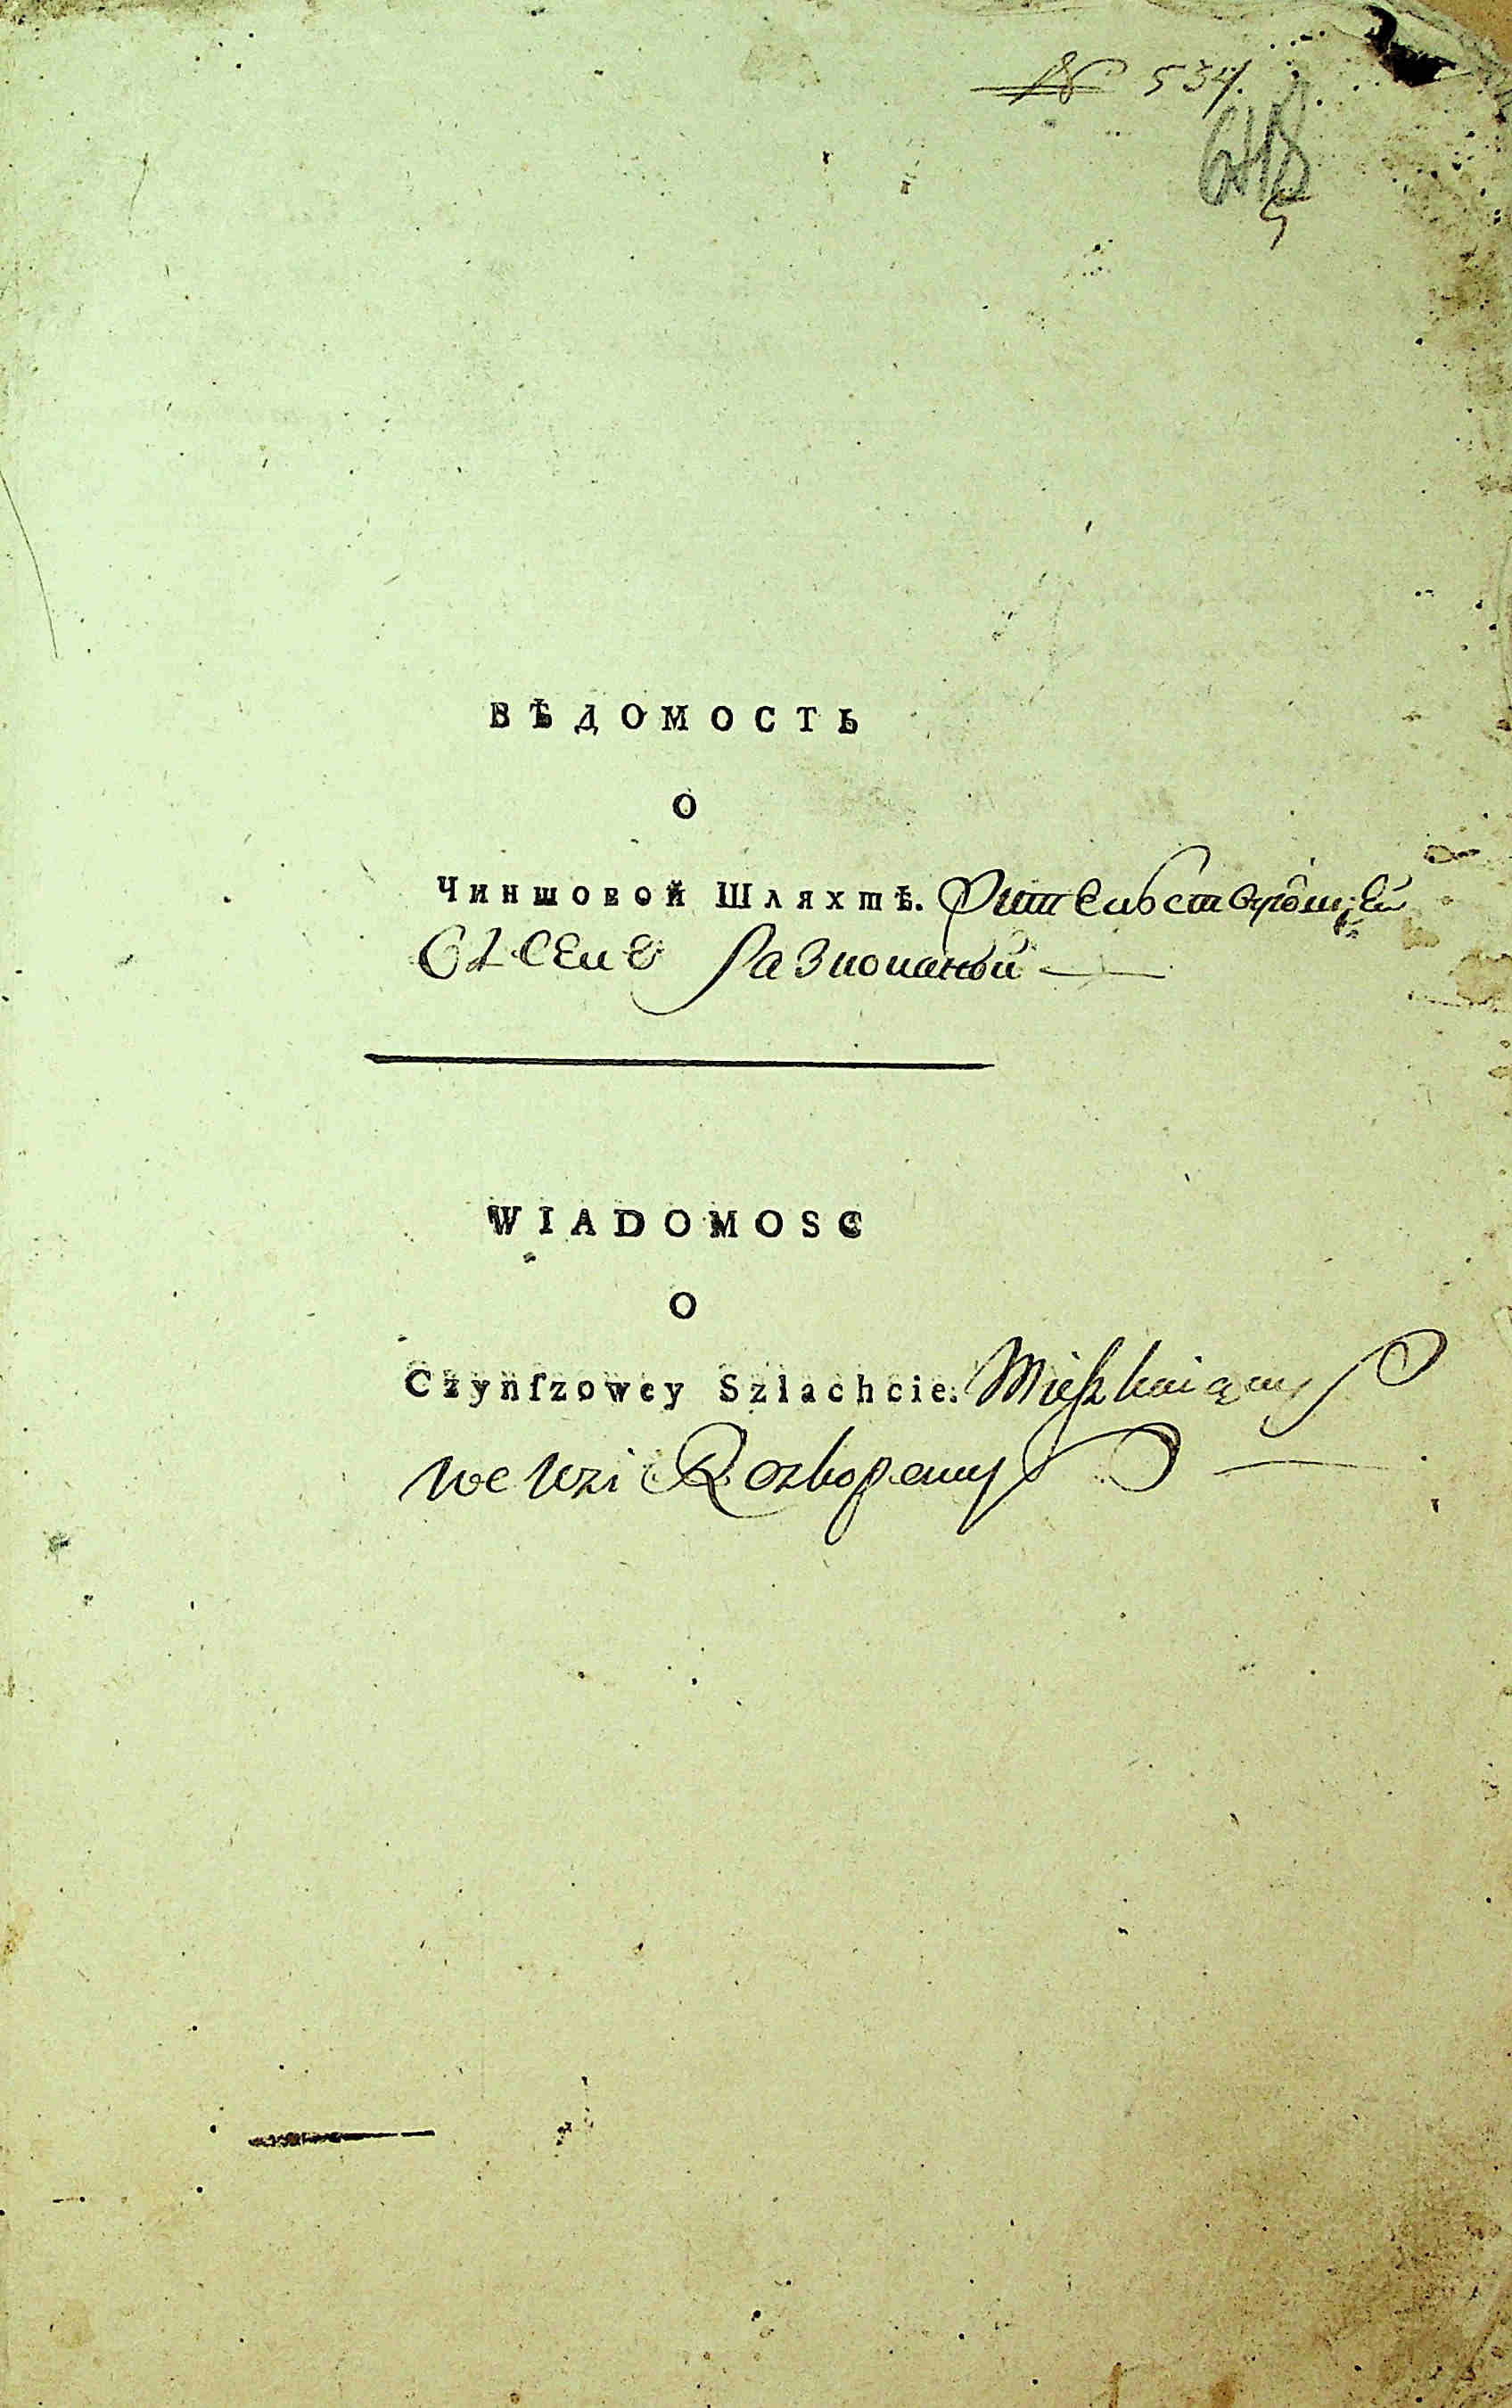 № 534.
ВѢДОМОСТЬ
О
Чиншовой Шляхтѣ. Жителствующей
въ селе
WIADOMOSC
O
Czynſzowey Szlachcie. Mieszkaiącey
we wsi Rozkopaney